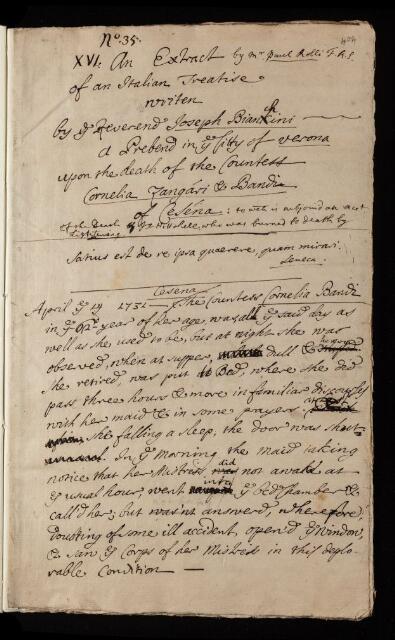 No. 35.
404
XVI. An Extract by Mr Paul Rolli F.R.S.
of an Italian Treatise
writen
by ye Reverend Joseph Bianchini
a Prebend in ye City of Verona
upon the death of the Countess
Cornelia Zangári & Bandi
of Cesena: to wch is subjoind an acct
of the Death of who was burned to death by
Satius est de re ipsa quaerere, quam mirari.
Seneca.
Cesena
April ye 1731 the Countess Cornelia Bandi
in ye 62d year of her age, was all ye said day as
well as she used to be, but at night she was
observed, when at supper, dull & heavy
She retired, was put to Bed, where she did
pass three hours & more in familiar discourses
with her maid & in some prayers
She falling a sleep, the door was shut
In ye Morning the Maid taking
notice that her Mistress did not awake at
ye usual hour, went into ye Bedchamber &
call'd her; but wasn't answerd, wherefore
doubting of some ill accident, open'd ye Window,
& saw ye Corps of her Mistress in this deplo-
rable Condition —